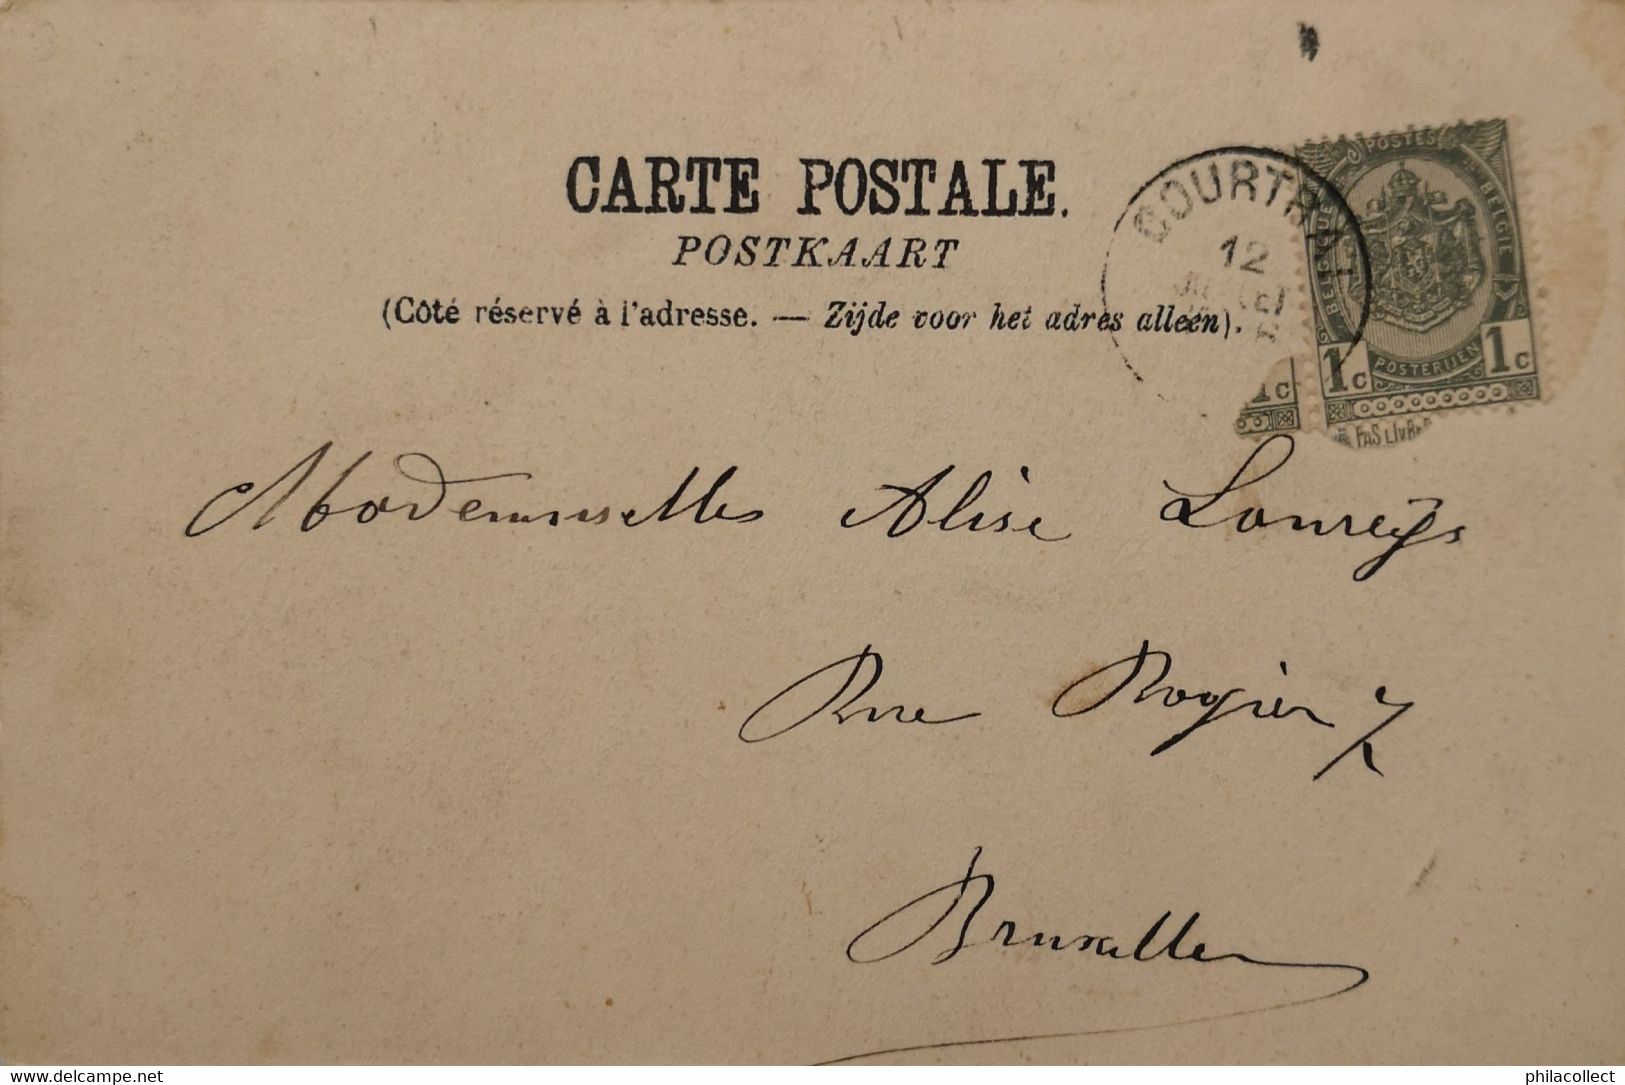 CARTE POSTALE.
POSTKAART
(Côté réservé à l'adresse. — Zijde voor het adres alleen).
COURTRAI
12
POSTES
BELGIE
BELGI
POSTERIJEN
1c 1c
1c
PAS LIVR
Mademoiselle Alise Loureÿs
Rue Rogier 7
Bruxelles
delcampe.net
philacollect